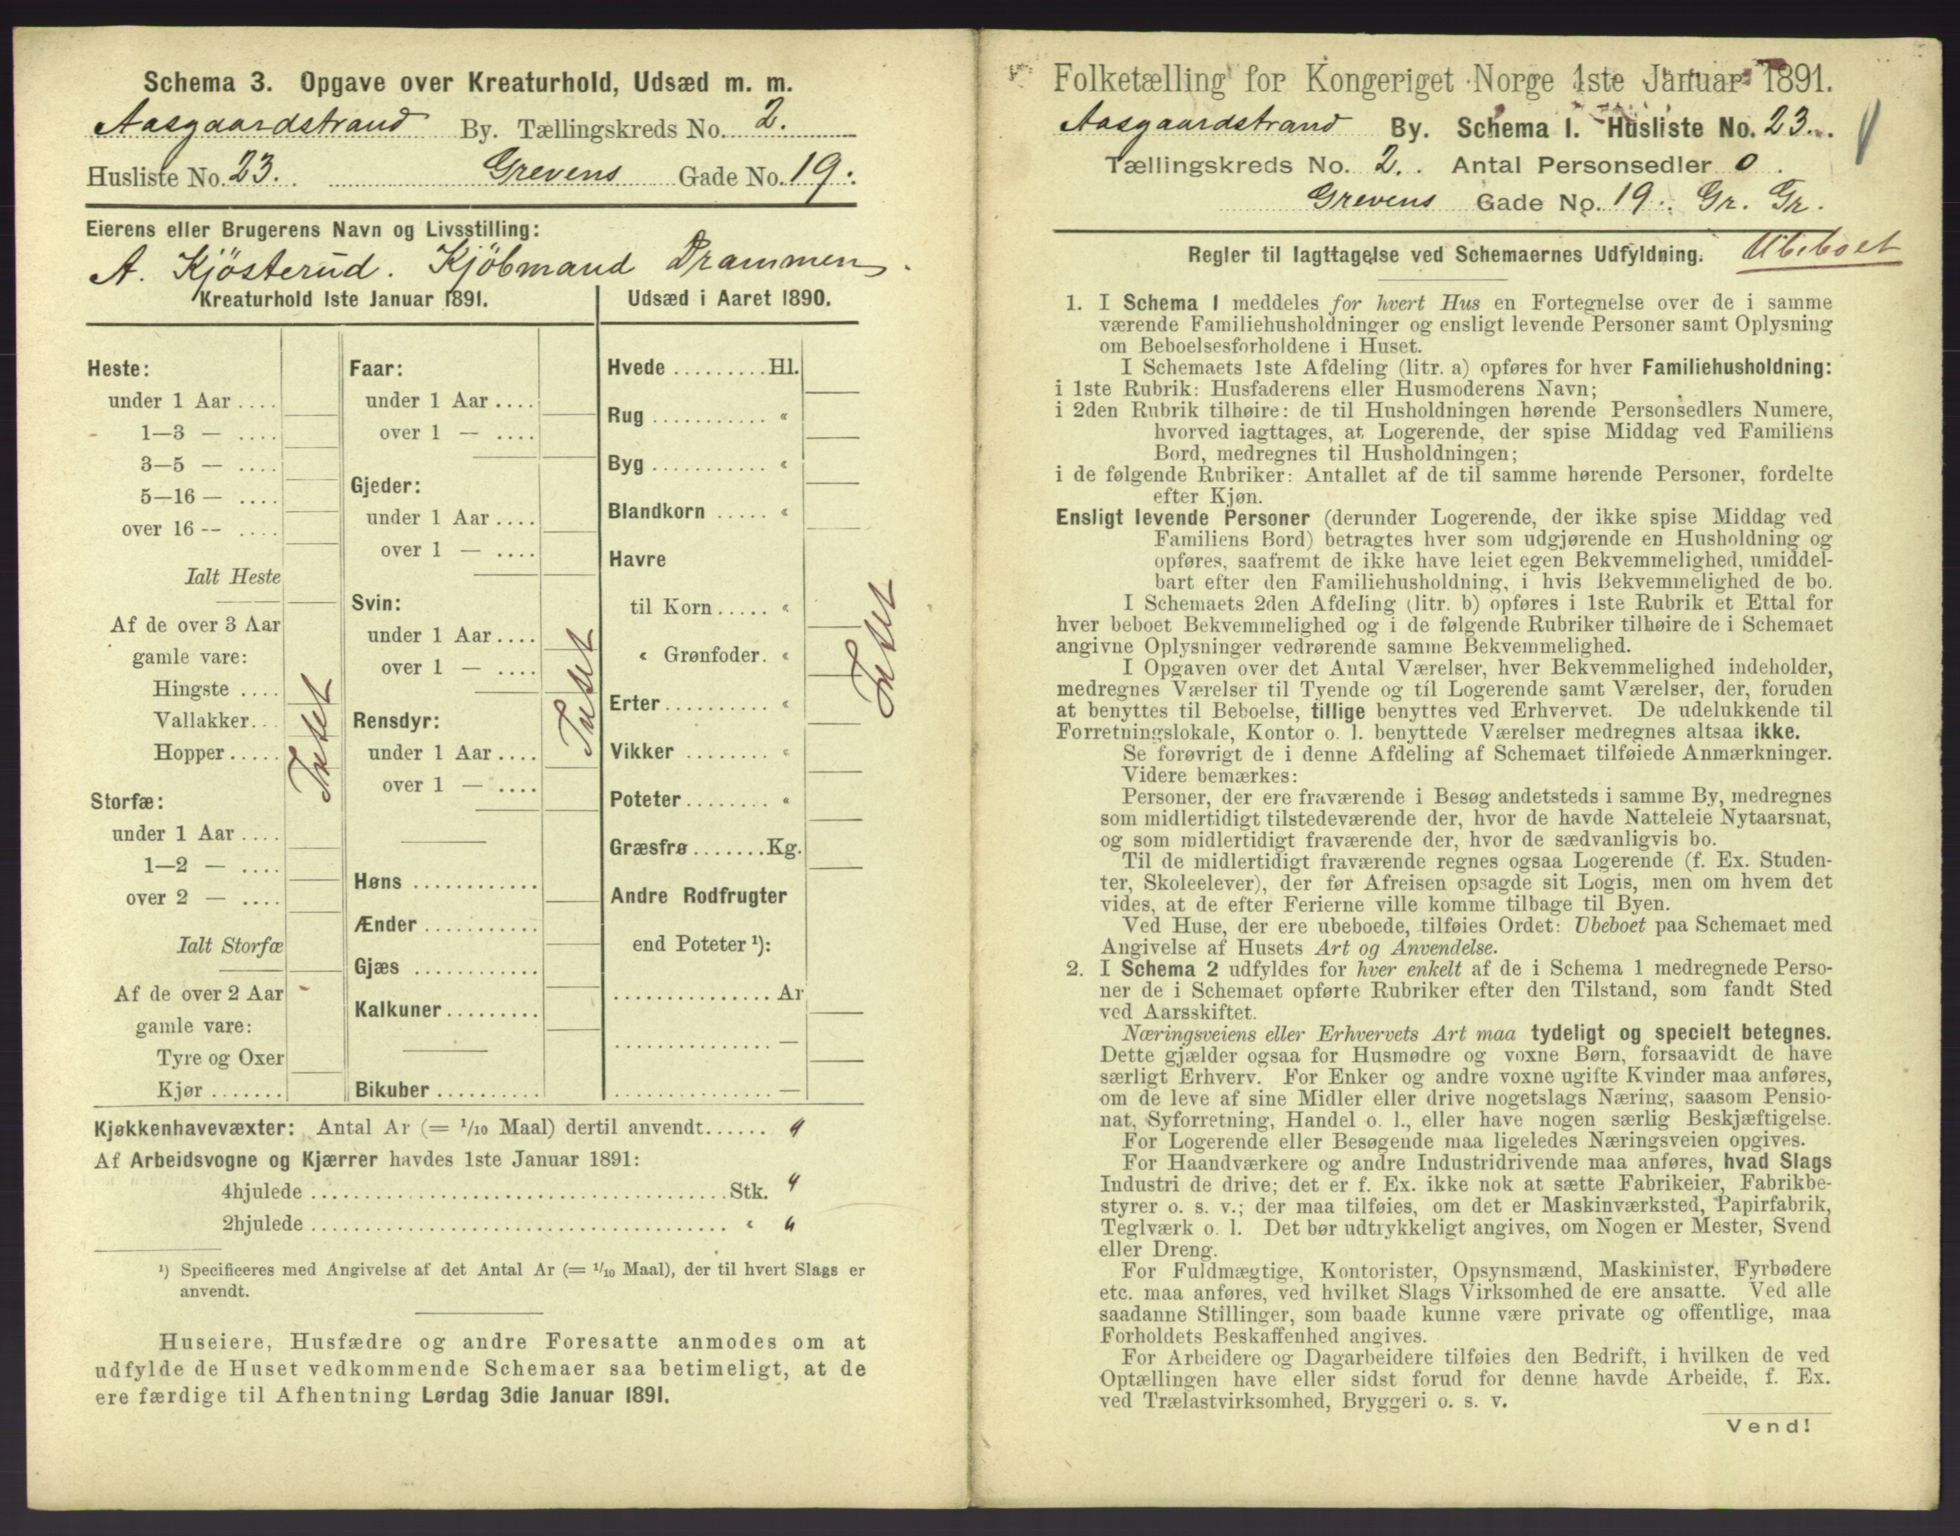 Schema 3. Opgave over Kreaturhold, Udsæd m. m.
Aasgaardstrand By. Tællingskreds No. 2.
Husliste No. 23. Grevens Gade No. 19.
Eierens eller Brugerens Navn og Livsstilling:
A. Kjösterud. Kjöbmand Drammen.
Kreaturhold 1ste Januar 1891.
Heste:
under 1 Aar ....
1—3 — ....
3—5 — ....
5—16 — ....
over 16 -- ....
Ialt Heste
Af de over 3 Aar
gamle vare:
Hingste ....
Vallakker...
Hopper.....
Storfæ:
under 1 Aar ....
1—2 — ....
over 2 — ....
Ialt Storfæ
Af de over 2 Aar
gamle vare:
Tyre og Oxer
Kjør .......
Intet
Faar:
under 1 Aar ....
over 1 — ....
Gjeder:
under 1 Aar ....
over 1 — ....
Svin:
under 1 Aar ....
over 1 — ....
Rensdyr:
under 1 Aar ....
over 1 — ....
Høns ............
Ænder ...........
Gjæs ............
Kalkuner.........
Bikuber ..........
Intet
Udsæd i Aaret 1890.
Hvede .........Hl.
Rug ........... «
Byg ........... «
Blandkorn ..... «
Havre
til Korn ..... «
« Grønfoder. «
Erter.......... «
Vikker ........ «
Poteter........ «
Græsfrø.......Kg.
Andre Rodfrugter
end Poteter ¹):
............... Ar
............... —
............... —
Intet
Kjøkkenhavevæxter: Antal Ar (= 1/10 Maal) dertil anvendt...... "
Af Arbeidsvogne og Kjærrer havdes 1ste Januar 1891:
4hjulede ........................................Stk. "
2hjulede ........................................ « "
¹) Specificeres med Angivelse af det Antal Ar (= 1/10 Maal), der til hvert Slags er
anvendt.
Huseiere, Husfædre og andre Foresatte anmodes om at
udfylde de Huset vedkommende Schemaer saa betimeligt, at de
ere færdige til Afhentning Lørdag 3die Januar 1891.
Folketælling for Kongeriget Norge 1ste Januar 1891.
Aasgaardstrand By. Schema 1. Husliste No. 23.
Tællingskreds No. 2. Antal Personsedler 0.
Grevens Gade No. 19. Gr. Gr.
Regler til Iagttagelse ved Schemaernes Udfyldning. Ubeboet
1. I Schema 1 meddeles for hvert Hus en Fortegnelse over de i samme
værende Familiehusholdninger og ensligt levende Personer samt Oplysning
om Beboelsesforholdene i Huset.
I Schemaets 1ste Afdeling (litr. a) opføres for hver Familiehusholdning:
i 1ste Rubrik: Husfaderens eller Husmoderens Navn;
i 2den Rubrik tilhøire: de til Husholdningen hørende Personsedlers Numere,
hvorved iagttages, at Logerende, der spise Middag ved Familiens
Bord, medregnes til Husholdningen;
i de følgende Rubriker: Antallet af de til samme hørende Personer, fordelte
efter Kjøn.
Ensligt levende Personer (derunder Logerende, der ikke spise Middag ved
Familiens Bord) betragtes hver som udgjørende en Husholdning og
opføres, saafremt de ikke have leiet egen Bekvemmelighed, umiddel-
bart efter den Familiehusholdning, i hvis Bekvemmelighed de bo.
I Schemaets 2den Afdeling (litr. b) opføres i 1ste Rubrik et Ettal for
hver beboet Bekvemmelighed og i de følgende Rubriker tilhøire de i Schemaet
angivne Oplysninger vedrørende samme Bekvemmelighed.
I Opgaven over det Antal Værelser, hver Bekvemmelighed indeholder,
medregnes Værelser til Tyende og til Logerende samt Værelser, der, foruden
at benyttes til Beboelse, tillige benyttes ved Erhvervet. De udelukkende til
Forretningslokale, Kontor o. l. benyttede Værelser medregnes altsaa ikke.
Se forøvrigt de i denne Afdeling af Schemaet tilføiede Anmærkninger.
Videre bemærkes:
Personer, der ere fraværende i Besøg andetsteds i samme By, medregnes
som midlertidigt tilstedeværende der, hvor de havde Natteleie Nytaarsnat,
og som midlertidigt fraværende der, hvor de sædvanligvis bo.
Til de midlertidigt fraværende regnes ogsaa Logerende (f. Ex. Studen-
ter, Skoleelever), der før Afreisen opsagde sit Logis, men om hvem det
vides, at de efter Ferierne ville komme tilbage til Byen.
Ved Huse, der ere ubeboede, tilføies Ordet: Ubeboet paa Schemaet med
Angivelse af Husets Art og Anvendelse.
2. I Schema 2 udfyldes for hver enkelt af de i Schema 1 medregnede Perso-
ner de i Schemaet opførte Rubriker efter den Tilstand, som fandt Sted
ved Aarsskiftet.
Næringsveiens eller Erhvervets Art maa tydeligt og specielt betegnes.
Dette gjælder ogsaa for Husmødre og voxne Børn, forsaavidt de have
særligt Erhverv. For Enker og andre voxne ugifte Kvinder maa anføres,
om de leve af sine Midler eller drive nogetslags Næring, saasom Pensio-
nat, Syforretning, Handel o. l., eller have nogen særlig Beskjæftigelse.
For Logerende eller Besøgende maa ligeledes Næringsveien opgives.
For Haandværkere og andre Industridrivende maa anføres, hvad Slags
Industri de drive; det er f. Ex. ikke nok at sætte Fabrikeier, Fabrikbe-
styrer o. s. v.; der maa tilføies, om det er Maskinværksted, Papirfabrik,
Teglværk o. l. Det bør udtrykkeligt angives, om Nogen er Mester, Svend
eller Dreng.
For Fuldmægtige, Kontorister, Opsynsmænd, Maskinister, Fyrbødere
etc. maa anføres, ved hvilket Slags Virksomhed de ere ansatte. Ved alle
saadanne Stillinger, som baade kunne være private og offentlige, maa
Forholdets Beskaffenhed angives.
For Arbeidere og Dagarbeidere tilføies den Bedrift, i hvilken de ved
Optællingen have eller sidst forud for denne havde Arbeide, f. Ex.
ved Trælastvirksomhed, Bryggeri o. s. v.
Vend!